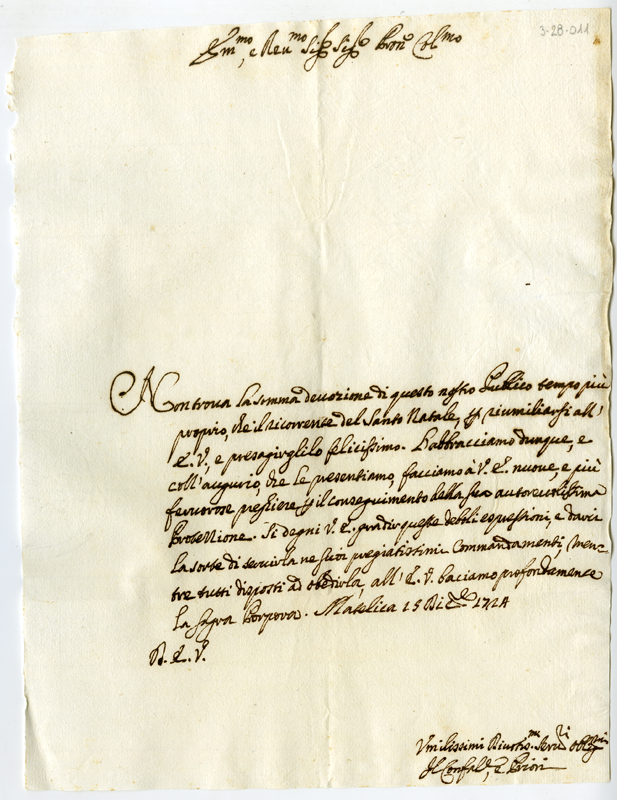 3-28-011
Em.mo, e Reu.mo Sig.r Sig.r Pron Col.mo
Non troua la somma deuozione di questo nostro Publico tempo più
proprio, che il ricorrente del Santo Natale, p riumiliarsi all'
E. V., e presagirglilo felicissimo. L'abbracciamo dunque, e
coll'augurio, che le presentiamo, facciamo à V. E. nuoue, e più
feruorose preghiere p il conseguimento della sua autoreuolissima
Protettione. Si degni V. E. gradir queste debili espressioni, e darci
la sorte di seruirla ne suoi pregiatissimi Commandamenti, men=
tre tutti disposti ad obedirla, all' E. V. baciamo profondamente
la Sagra Porpora. Matelica 15 Di.Cbre 1714
D. E. V.
Vmilissimi Diuotis.mi Seru.ri oblig.mi
Il Confal.re, e Priori